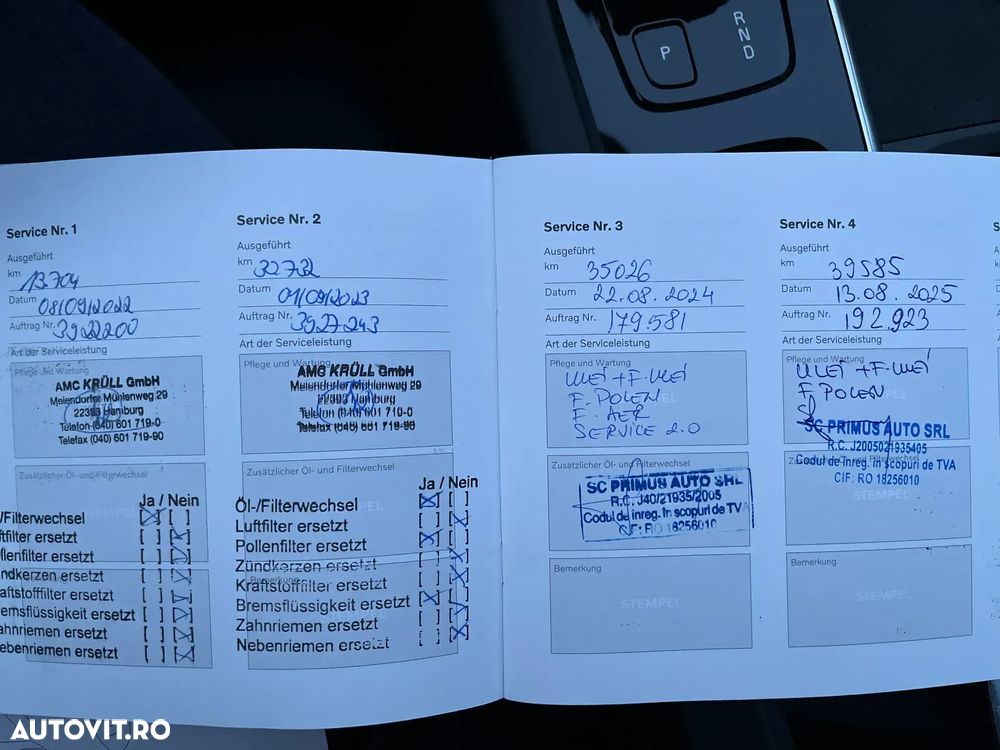 P
R
N
D
Service Nr. 1
Ausgeführt
km 13.704
Datum 08/09/2022
Auftrag Nr. 3922200
Art der Serviceleistung
Pflege und Wartung
AMC KRÜLL GmbH
Meiendorfer Mühlenweg 29
22393 Hamburg
Telefon (040) 601 719-0
Telefax (040) 601 719-90
Zusätzlicher Öl- und Filterwechsel
Ja / Nein
/Filterwechsel [X] [ ]
ftfilter ersetzt [ ] [X]
llenfilter ersetzt [ ] [X]
ndkerzen ersetzt [ ] [X]
aftstofffilter ersetzt [ ] [X]
emsflüssigkeit ersetzt [ ] [X]
ahnriemen ersetzt [ ] [X]
ebenriemen ersetzt [ ] [X]
Service Nr. 2
Ausgeführt
km 32732
Datum 01/09/2023
Auftrag Nr. 3927243
Art der Serviceleistung
Pflege und Wartung
AMC KRÜLL GmbH
Meiendorfer Mühlenweg 29
22393 Hamburg
Telefon (040) 601 719-0
Telefax (040) 601 719-90
Zusätzlicher Öl- und Filterwechsel
Ja / Nein
Öl-/Filterwechsel [X] [ ]
Luftfilter ersetzt [ ] [X]
Pollenfilter ersetzt [X] [ ]
Zündkerzen ersetzt [ ] [X]
Kraftstofffilter ersetzt [ ] [X]
Bremsflüssigkeit ersetzt [X] [ ]
Zahnriemen ersetzt [ ] [X]
Nebenriemen ersetzt [ ] [X]
Service Nr. 3
Ausgeführt
km 35026
Datum 22.08.2024
Auftrag Nr. 179.581
Art der Serviceleistung
Pflege und Wartung
ULEI + F. ULEI
F. POLEN
F. AER
SERVICE 2.0
Zusätzlicher Öl- und Filterwechsel
SC PRIMUS AUTO SRL
R.C. J40/21935/2005
Codul de inreg. in scopuri de TVA
CIF: RO 18256010
Bemerkung
STEMPEL
Service Nr. 4
Ausgeführt
km 39585
Datum 13.08.2025
Auftrag Nr. 192.923
Art der Serviceleistung
Pflege und Wartung
ULEI + F. ULEI
F. POLEN
SC PRIMUS AUTO SRL
R.C. J2005021935405
Codul de inreg. in scopuri de TVA
CIF: RO 18256010
STEMPEL
Bemerkung
STEMPEL
AUTOVIT.RO